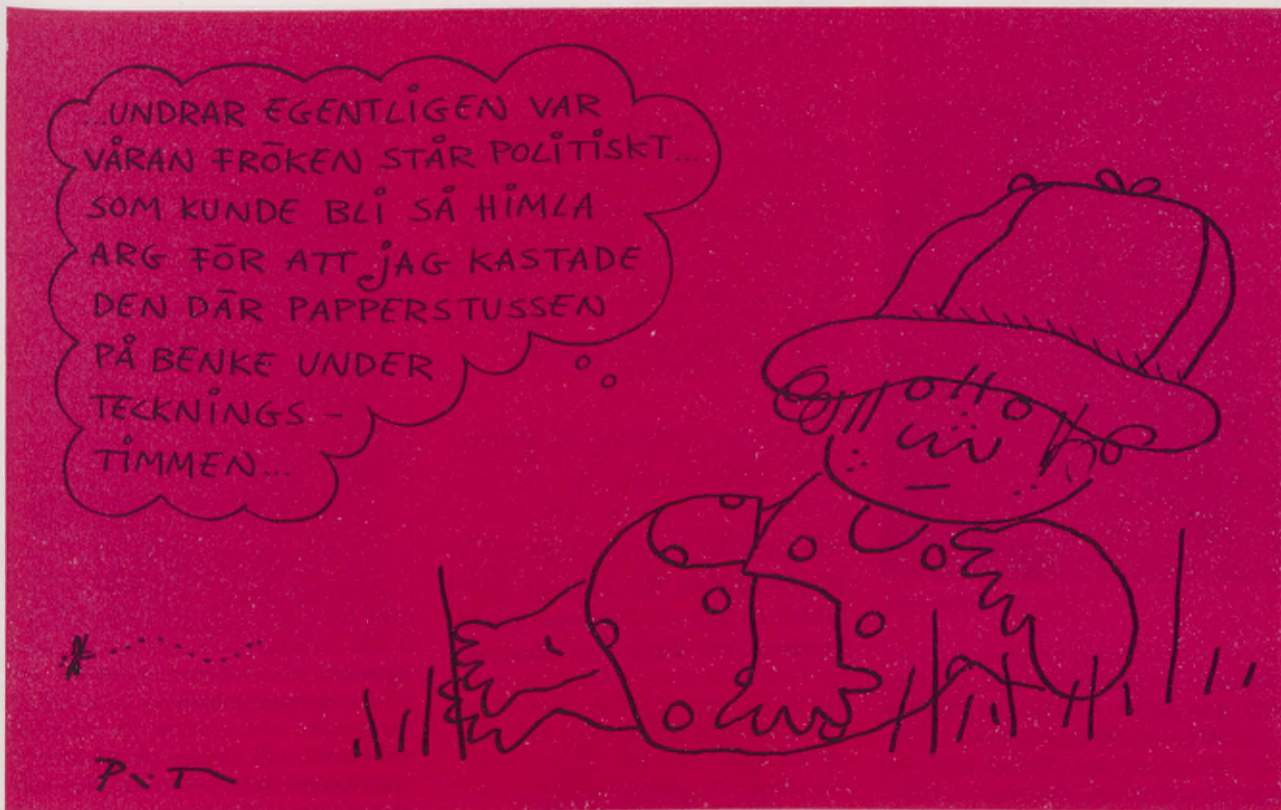 ...UNDRAR EGENTLIGEN VAR
VÅRAN FRÖKEN STÅR POLITISKT...
SOM KUNDE BLI SÅ HIMLA
ARG FÖR ATT JAG KASTADE
DEN DÄR PAPPERSTUSSEN
PÅ BENKE UNDER
TECKNINGS-
TIMMEN...